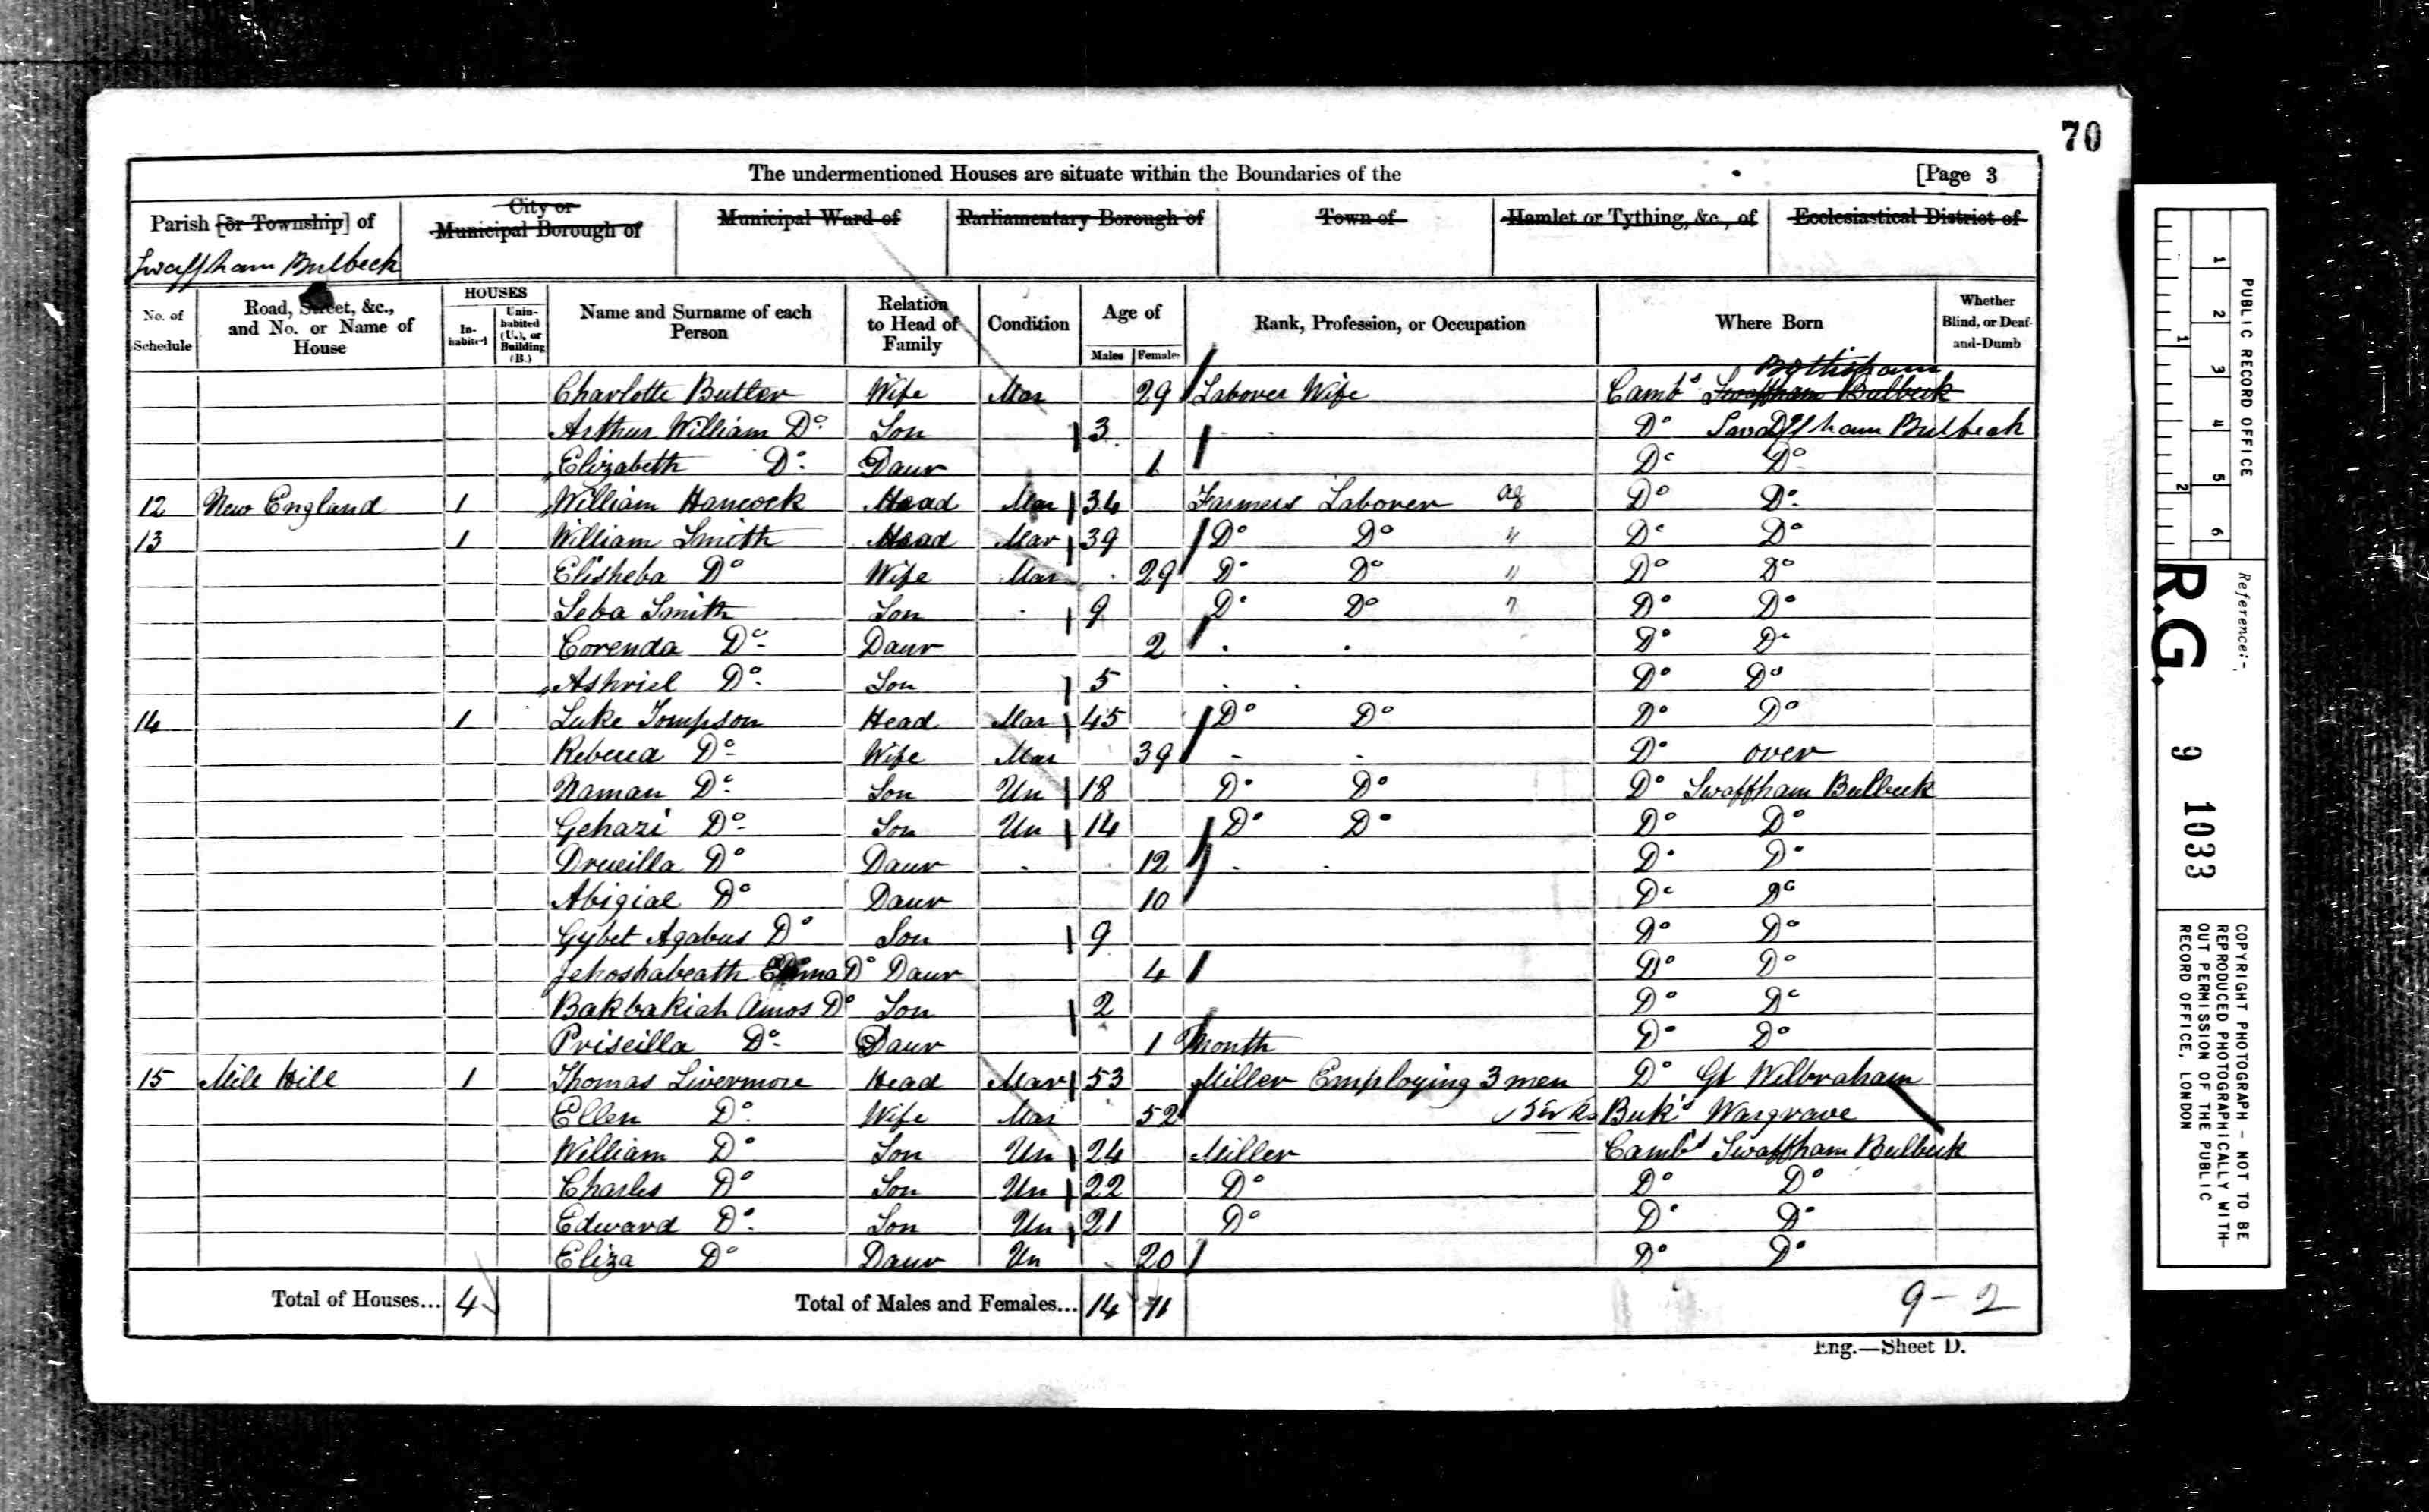 70
The undermentioned Houses are situate within the Boundaries of the [Page 3
Parish [or Township] of City or Municipal Borough of Municipal Ward of Parliamentary Borough of Town of Hamlet or Tything, &c., of Ecclesiastical District of
Swaffham Bulbeck
No. of Schedule Road, Street, &c., and No. or Name of House HOUSES Inhabited Uninhabited (U.), or Building (B.) Name and Surname of each Person Relation to Head of Family Condition Age of Males Females Rank, Profession, or Occupation Where Born Whether Blind, or Deaf-and-Dumb
Bottisham
Charlotte Butler Wife Mar 29 Laborer Wife Cambs Swaffham Bulbeck
Arthur William Do. Son 3 Do Swaffham Bulbeck
Elizabeth Do. Daur 1 Do Do
12 New England 1 William Hancock Head Mar 34 Farmers Laborer ag Do Do.
13 1 William Smith Head Mar 39 Do Do " Do Do
Elisheba Do Wife Mar 29 Do Do " Do Do
Seba Smith Son 9 Do Do " Do Do
Corenda Do Daur 2 Do Do
Ashriel Do. Son 5 Do Do
14 1 Luke Tompson Head Mar 45 Do Do Do Do
Rebecca Do Wife Mar 39 Do over
Naman Do Son Un 18 Do Do Do Swaffham Bulbeck
Gehazi Do Son Un 14 Do Do Do Do
Drucilla Do Daur 12 Do Do
Abigial Do Daur 10 Do Do
Gybet Agabus Do Son 9 Do Do
Jehoshabeath Do Daur 4 Do Do
Bakbakiah Amos Do Son 2 Do Do
Priscilla Do Daur 1 Month Do Do
15 Mill Hill 1 Thomas Livermore Head Mar 53 Miller Employing 3 men Do Gt Wilbraham
Ellen Do. Wife Mar 52 Berks Buks Wargrave
William Do Son Un 24 Miller Cambs Swaffham Bulbeck
Charles Do Son Un 22 Do Do Do
Edward Do. Son Un 21 Do Do Do
Eliza Do Daur Un 20 Do Do
Total of Houses... 4 Total of Males and Females... 14 11 9-2
Eng.—Sheet D.
1 2 3 4 5 6
1 2
PUBLIC RECORD OFFICE
Reference:-
R.G. 9 1033
COPYRIGHT PHOTOGRAPH - NOT TO BE
REPRODUCED PHOTOGRAPHICALLY WITH-
OUT PERMISSION OF THE PUBLIC
RECORD OFFICE, LONDON